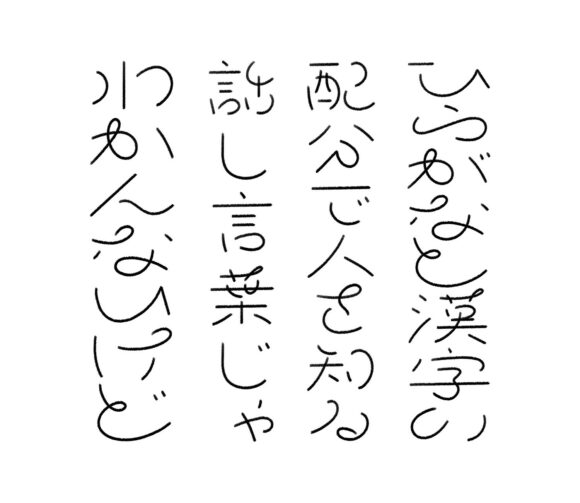 ひらがなと漢字の
配分で人を知る
話し言葉じゃ
わかんないけど